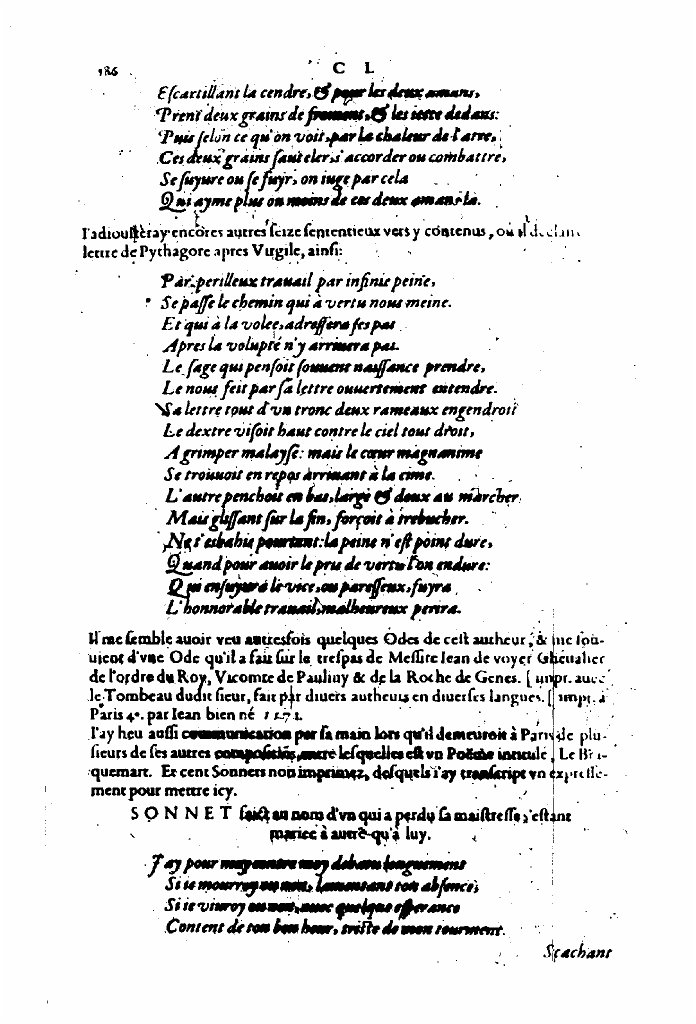 186 C L
Escartillant la cendre, & pour les deux amans,
Prent deux grains de froment, & les iette dedans:
Puis selon ce qu'on voit, par la chaleur de l'atre,
Ces deux grains sauteler, s'accorder ou combattre,
Se suyure ou se fuyr, on iuge par cela
Qui ayme plus ou moins de ces deux amans la.
I'adiousteray encores autres seize sententieux vers y contenus, ou il declare
lettre de Pythagore apres Virgile, ainsi:
Par perilleux trauail par infinie peine,
Se passe le chemin qui à vertu nous meine.
Et qui à la volee, adressera ses pas
Apres la volupté n'y arriuera pas.
Le sage qui pensoit souuent naissance prendre,
Le nous feit par sa lettre ouuertement entendre.
Sa lettre tout d'vn tronc deux rameaux engendroit
Le dextre visoit haut contre le ciel tout droit,
A grimper malaysé: mais le cœur magnanime
Se trouuoit en repos arriuant à la cime.
L'autre penchoit en bas, large & doux au marcher
Mais glissant sur la fin, forçoit à trebucher.
Ne t'esbahis pourtant: la peine n'est point dure,
Quand pour auoir le pris de vertu l'on endure:
Qui ensuyura le vice, ou paresseux, fuyra
L'honnorable trauail, malheureux perira.
Il me semble auoir veu autresfois quelques Odes de cest autheur, & me sou-
uient d'vne Ode qu'il a fait sur le trespas de Messire Iean de voyer Cheualier
de l'ordre du Roy, Vicomte de Paulmy & de la Roche de Genes. [impr. auec
le Tombeau dudit sieur, fait par diuers autheurs en diuerses langues. [impr. à
Paris 4°. par Iean bien né 1571.
I'ay heu aussi communication par sa main lors qu'il demeuroit à Paris de plu-
sieurs de ses autres compositiõs, entre lesquelles est vn Poëme intitulé, Le Bri-
quemart. Et cent Sonnets non imprimez, desquels i'ay transcript vn expresse-
ment pour mettre icy.
SONNET faict au nom d'vn qui a perdu sa maistresse, s'estant
mariee à autre qu'à luy.
J'ay pour moy contre moy debatu longuement
Si ie mourroy ou non, lamentant ton absence,
Si ie viuroy ou non, auec quelque esperance
Content de ton bon heur, triste de mon tourment.
Scachant